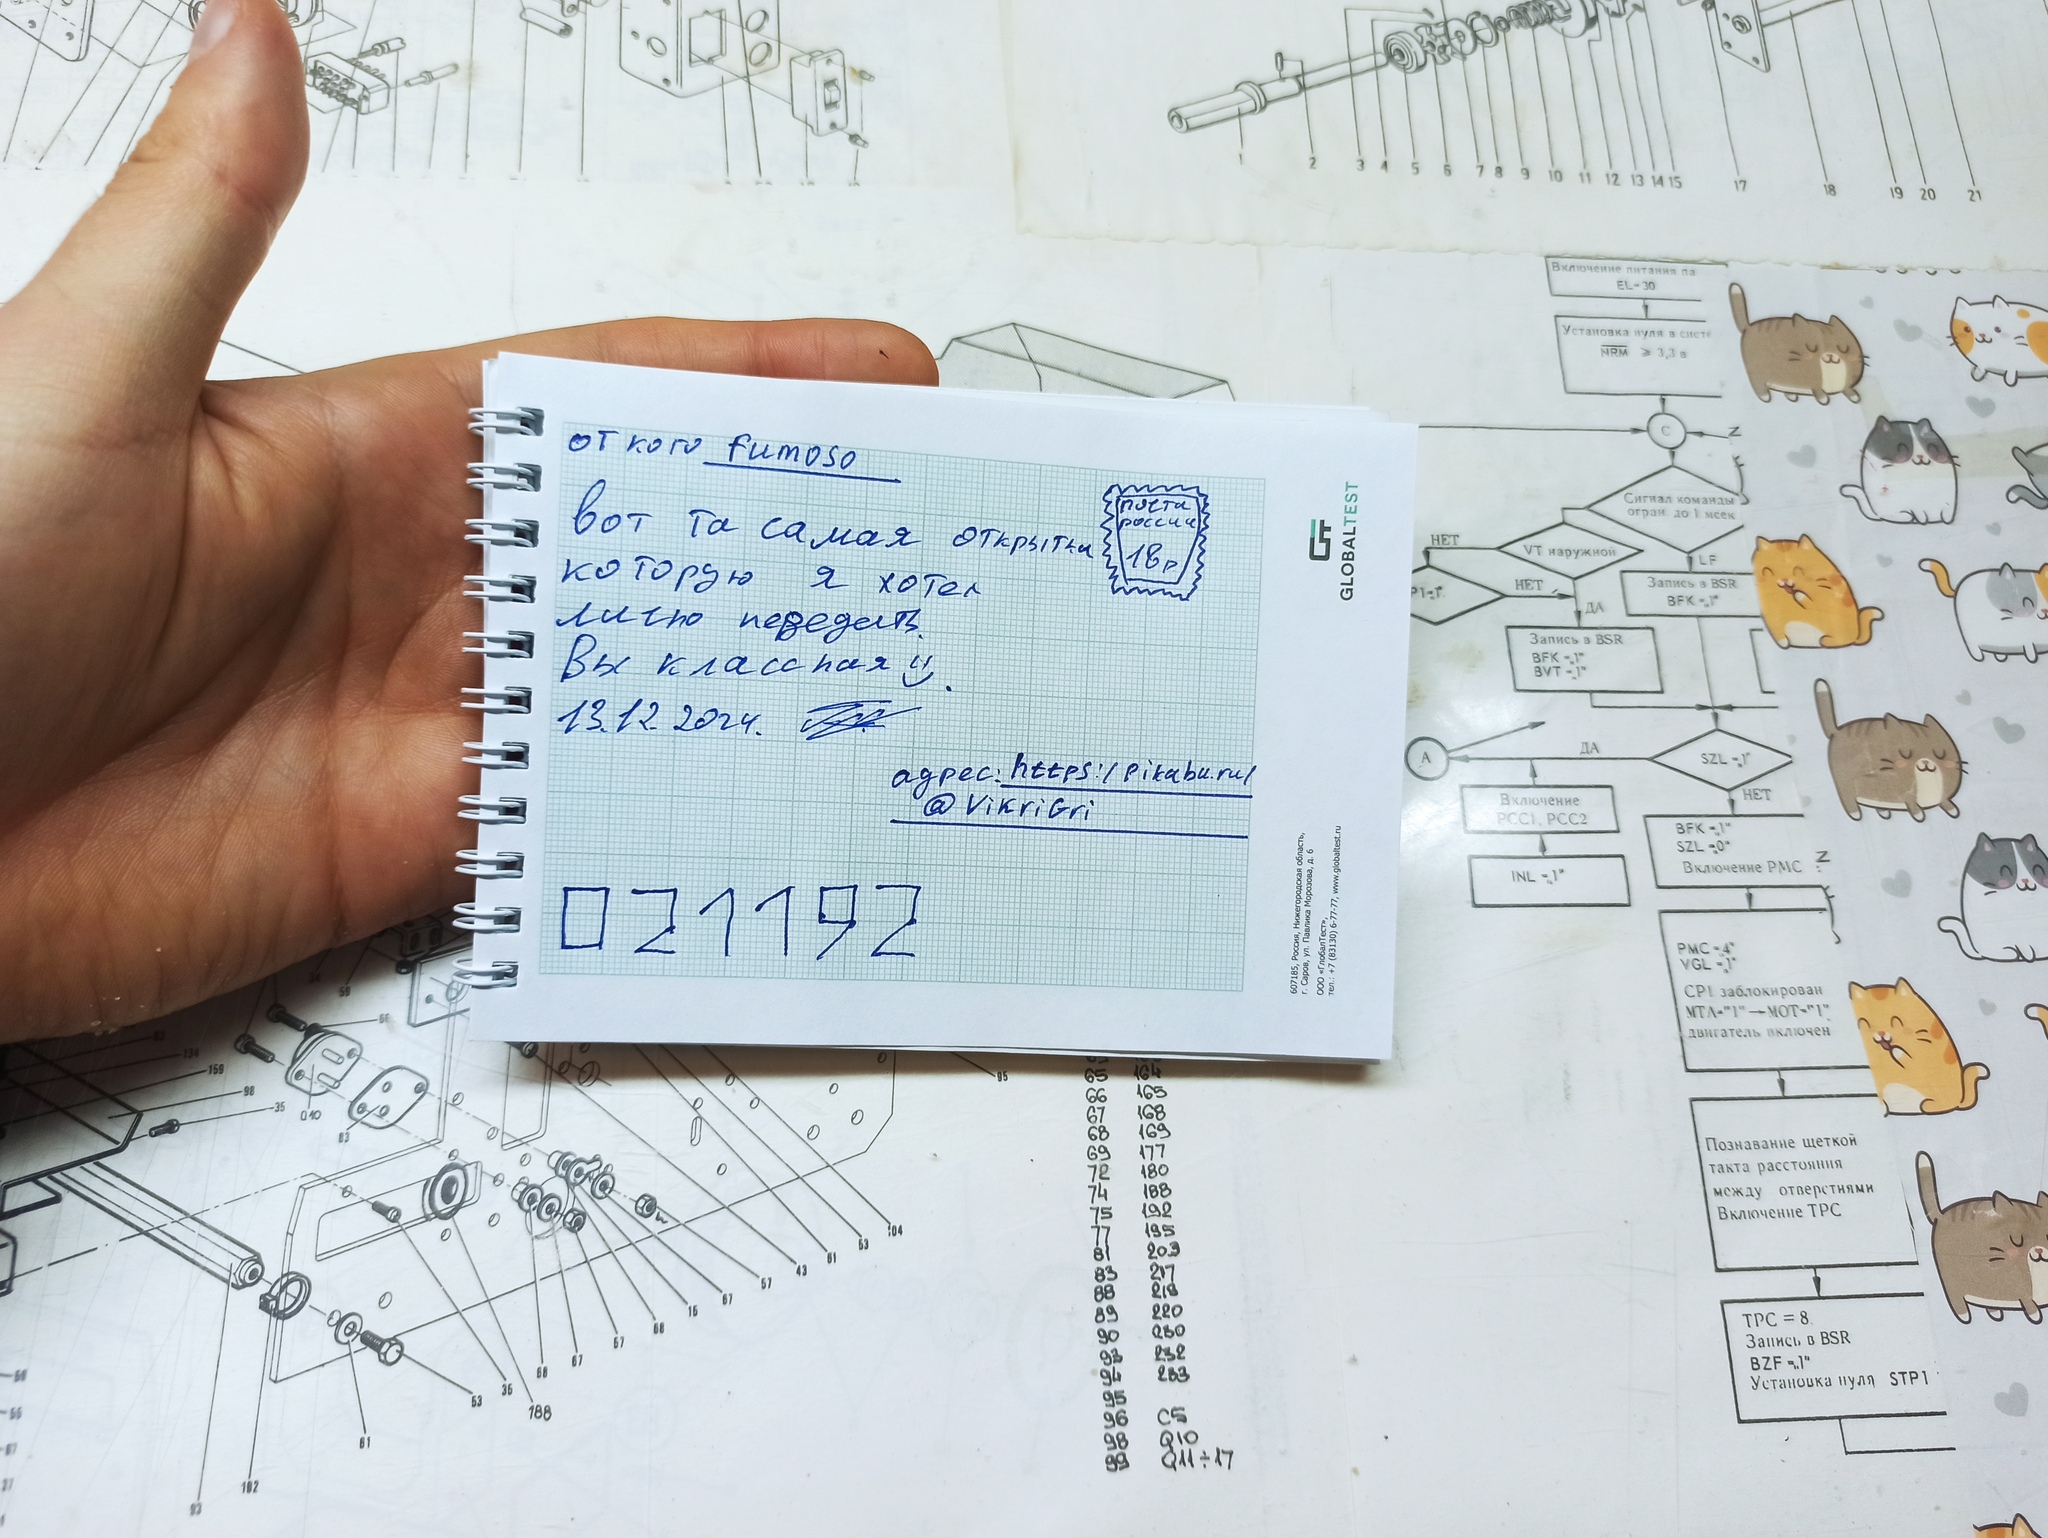 1 2 3 4 5 6 7 8 9 10 11 12 13 14 15 17 18 19 20 21
Включение питания па
EL-30
Установка нуля в систе
NRM ≥ 3,3 в
C
N
Сигнал команды
огран до 1 мсек
НЕТ
VT наружной
LF
P1-„1"
НЕТ
ДА
Запись в BSR
BFK -„1"
Запись в BSR
BFK -„1"
BVT -„1"
A
ДА
SZL -„1"
НЕТ
Включение
PCC1, PCC2
INL -„1"
BFK -„1"
SZL -„0"
Включение PMC
N
PMC -„4"
VGL -„1"
CP1 заблокирован
МТЛ-"1" → МОТ-"1"
двигатель включен
Познавание щеткой
такта расстояния
между отверстиями
Включение TPC
TPC = 8
Запись в BSR
BZF -„1"
Установка нуля STP1
от кого fumoso
вот та самая открытка
которую я хотел
лично передать.
Вы классная
13.12.2024.
почта
россии
18р
адрес: https:/pikabu.ru/
@VikriGri
021192
GLOBALTEST
607185, Россия, Нижегородская область,
г. Саров, ул. Павлика Морозова, д. 6
ООО «ГлобалТест»,
тел.: +7 (83130) 6-77-77, www.globaltest.ru
134
159
98
35
59
66
010
83
95
65 164
66 165
67 168
68 169
69 177
72 180
74 188
75 192
77 195
81 203
83 217
88 218
89 220
90 230
93 232
94 233
95
96 C5
98 Q10
99 Q11÷17
104
53
61
43
57
67
15
68
67
67
68
188
35
53
61
102
93